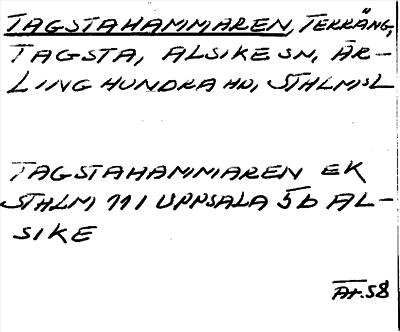 TAGSTAHAMMAREN, TERRÄNG,
TAGSTA, ALSIKE SN, ÄR-
LINGHUNDRA HD, STHLMSL
TAGSTAHAMMAREN EK
STHLM 111 UPPSALA 5b AL-
SIKE
Ar.58